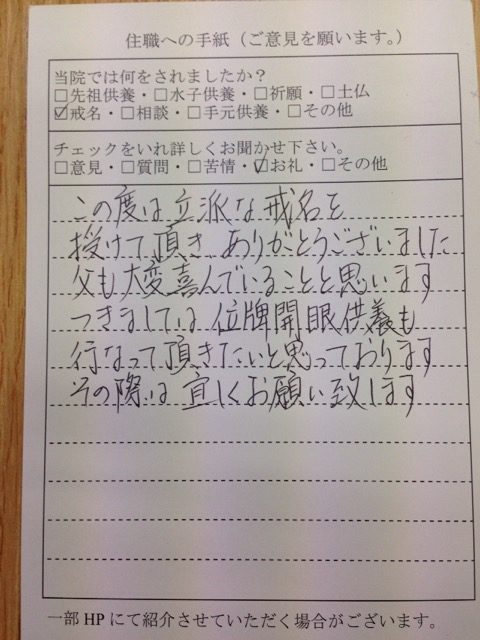 住職への手紙（ご意見を願います。）
当院では何をされましたか？
□先祖供養・□水子供養・□祈願・□土仏
☑戒名・□相談・□手元供養・□その他
チェックをいれ詳しくお聞かせ下さい。
□意見・□質問・□苦情・☑お礼・□その他
この度は立派な戒名を
授けて頂き ありがとうございました
父も大変喜んでいることと思います
つきましては 位牌開眼供養も
行なって頂きたいと思っております
その際は 宜しくお願い致します
一部HPにて紹介させていただく場合がございます。